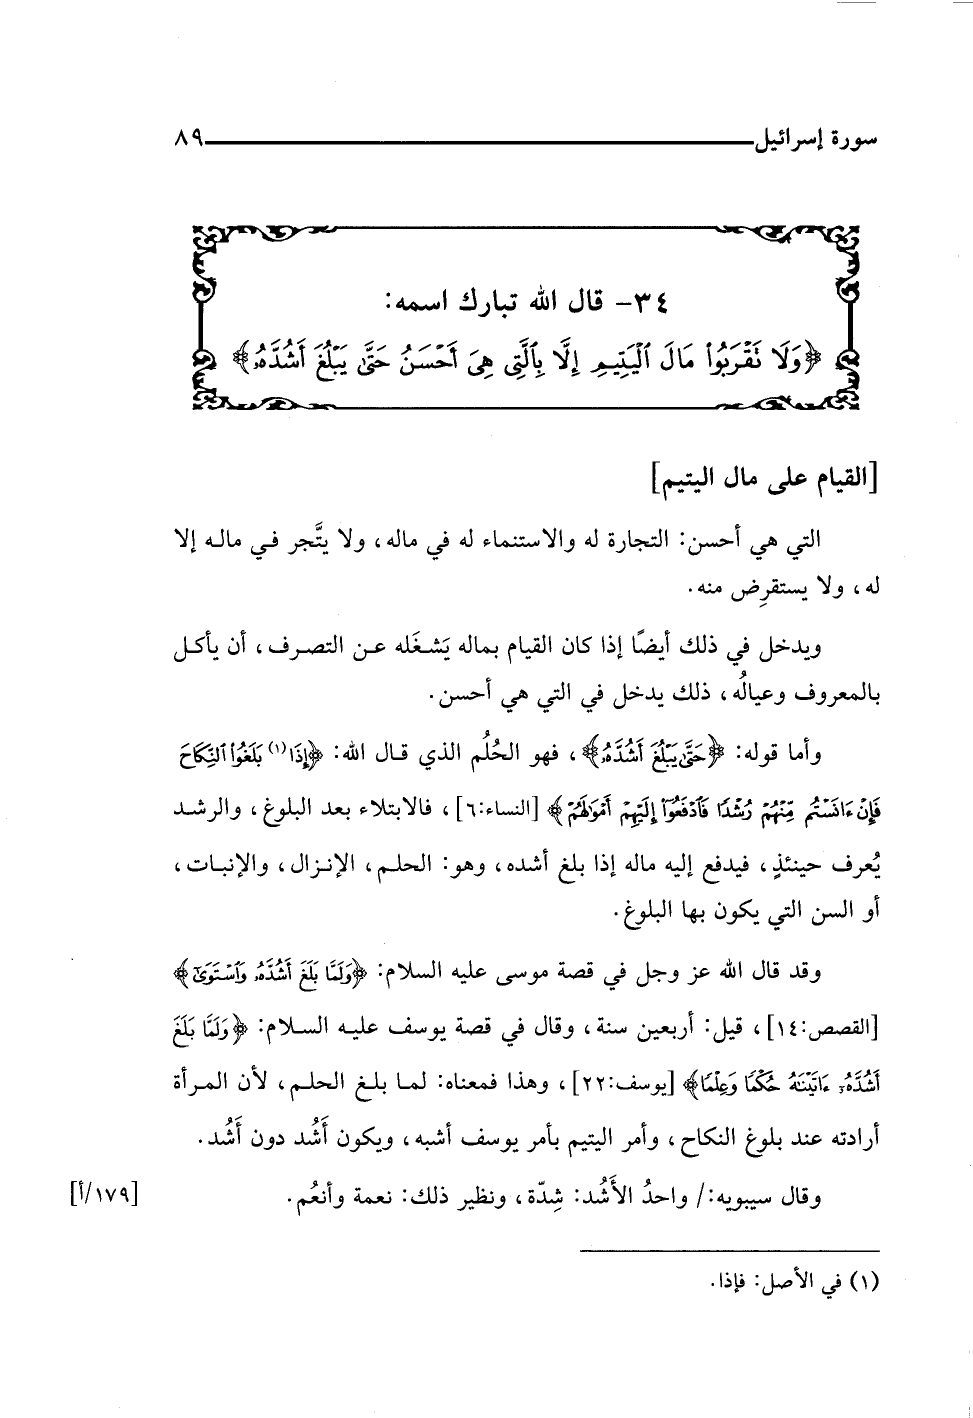 سورة إسرائيل ٨٩
٣٤- قال الله تبارك اسمه:
﴿وَلَا نَقْرَبُوا۟ مَالَ ٱلْيَتِيمِ إِلَّا بِٱلَّتِى هِىَ أَحْسَنُ حَتَّىٰ يَبْلُغَ أَشُدَّهُۥ﴾
[القيام على مال اليتيم]
التي هي أحسن: التجارة له والاستنماء له في ماله، ولا يتَّجر في ماله إلا
له، ولا يستقرِض منه.
ويدخل في ذلك أيضًا إذا كان القيام بماله يَشغَله عن التصرف، أن يأكل
بالمعروف وعيالُه، ذلك يدخل في التي هي أحسن.
وأما قوله: ﴿حَتَّىٰ يَبْلُغَ أَشُدَّهُۥ﴾، فهو الحُلُم الذي قال الله: ﴿إِذَا(١) بَلَغُوا۟ ٱلنِّكَاحَ
فَإِنْ ءَانَسْتُم مِّنْهُمْ رُشْدًا فَٱدْفَعُوٓا۟ إِلَيْهِمْ أَمْوَٰلَهُمْ﴾ [النساء:٦]، فالابتلاء بعد البلوغ، والرشد
يُعرف حينئذٍ، فيدفع إليه ماله إذا بلغ أشده، وهو: الحلم، الإنزال، والإنبات،
أو السن التي يكون بها البلوغ.
وقد قال الله عز وجل في قصة موسى عليه السلام: ﴿وَلَمَّا بَلَغَ أَشُدَّهُۥ وَٱسْتَوَىٰٓ﴾
[القصص:١٤]، قيل: أربعين سنة، وقال في قصة يوسف عليه السلام: ﴿وَلَمَّا بَلَغَ
أَشُدَّهُۥٓ ءَاتَيْنَٰهُ حُكْمًا وَعِلْمًا﴾ [يوسف:٢٢]، وهذا فمعناه: لما بلغ الحلم، لأن المرأة
أرادته عند بلوغ النكاح، وأمر اليتيم بأمر يوسف أشبه، ويكون أَشُد دون أَشُد.
وقال سيبويه:/ واحدُ الأَشُد: شِدّة، ونظير ذلك: نعمة وأنعُم. [١٧٩/أ]
(١) في الأصل: فإذا.